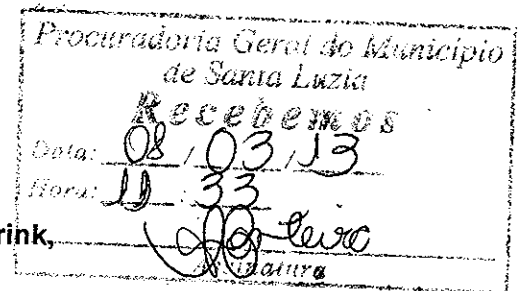 Procuradoria Geral do Município
de Santa Luzia
Recebemos
Data: 08 / 03 / 13
Hora: 11 : 33
rink,
Assinatura